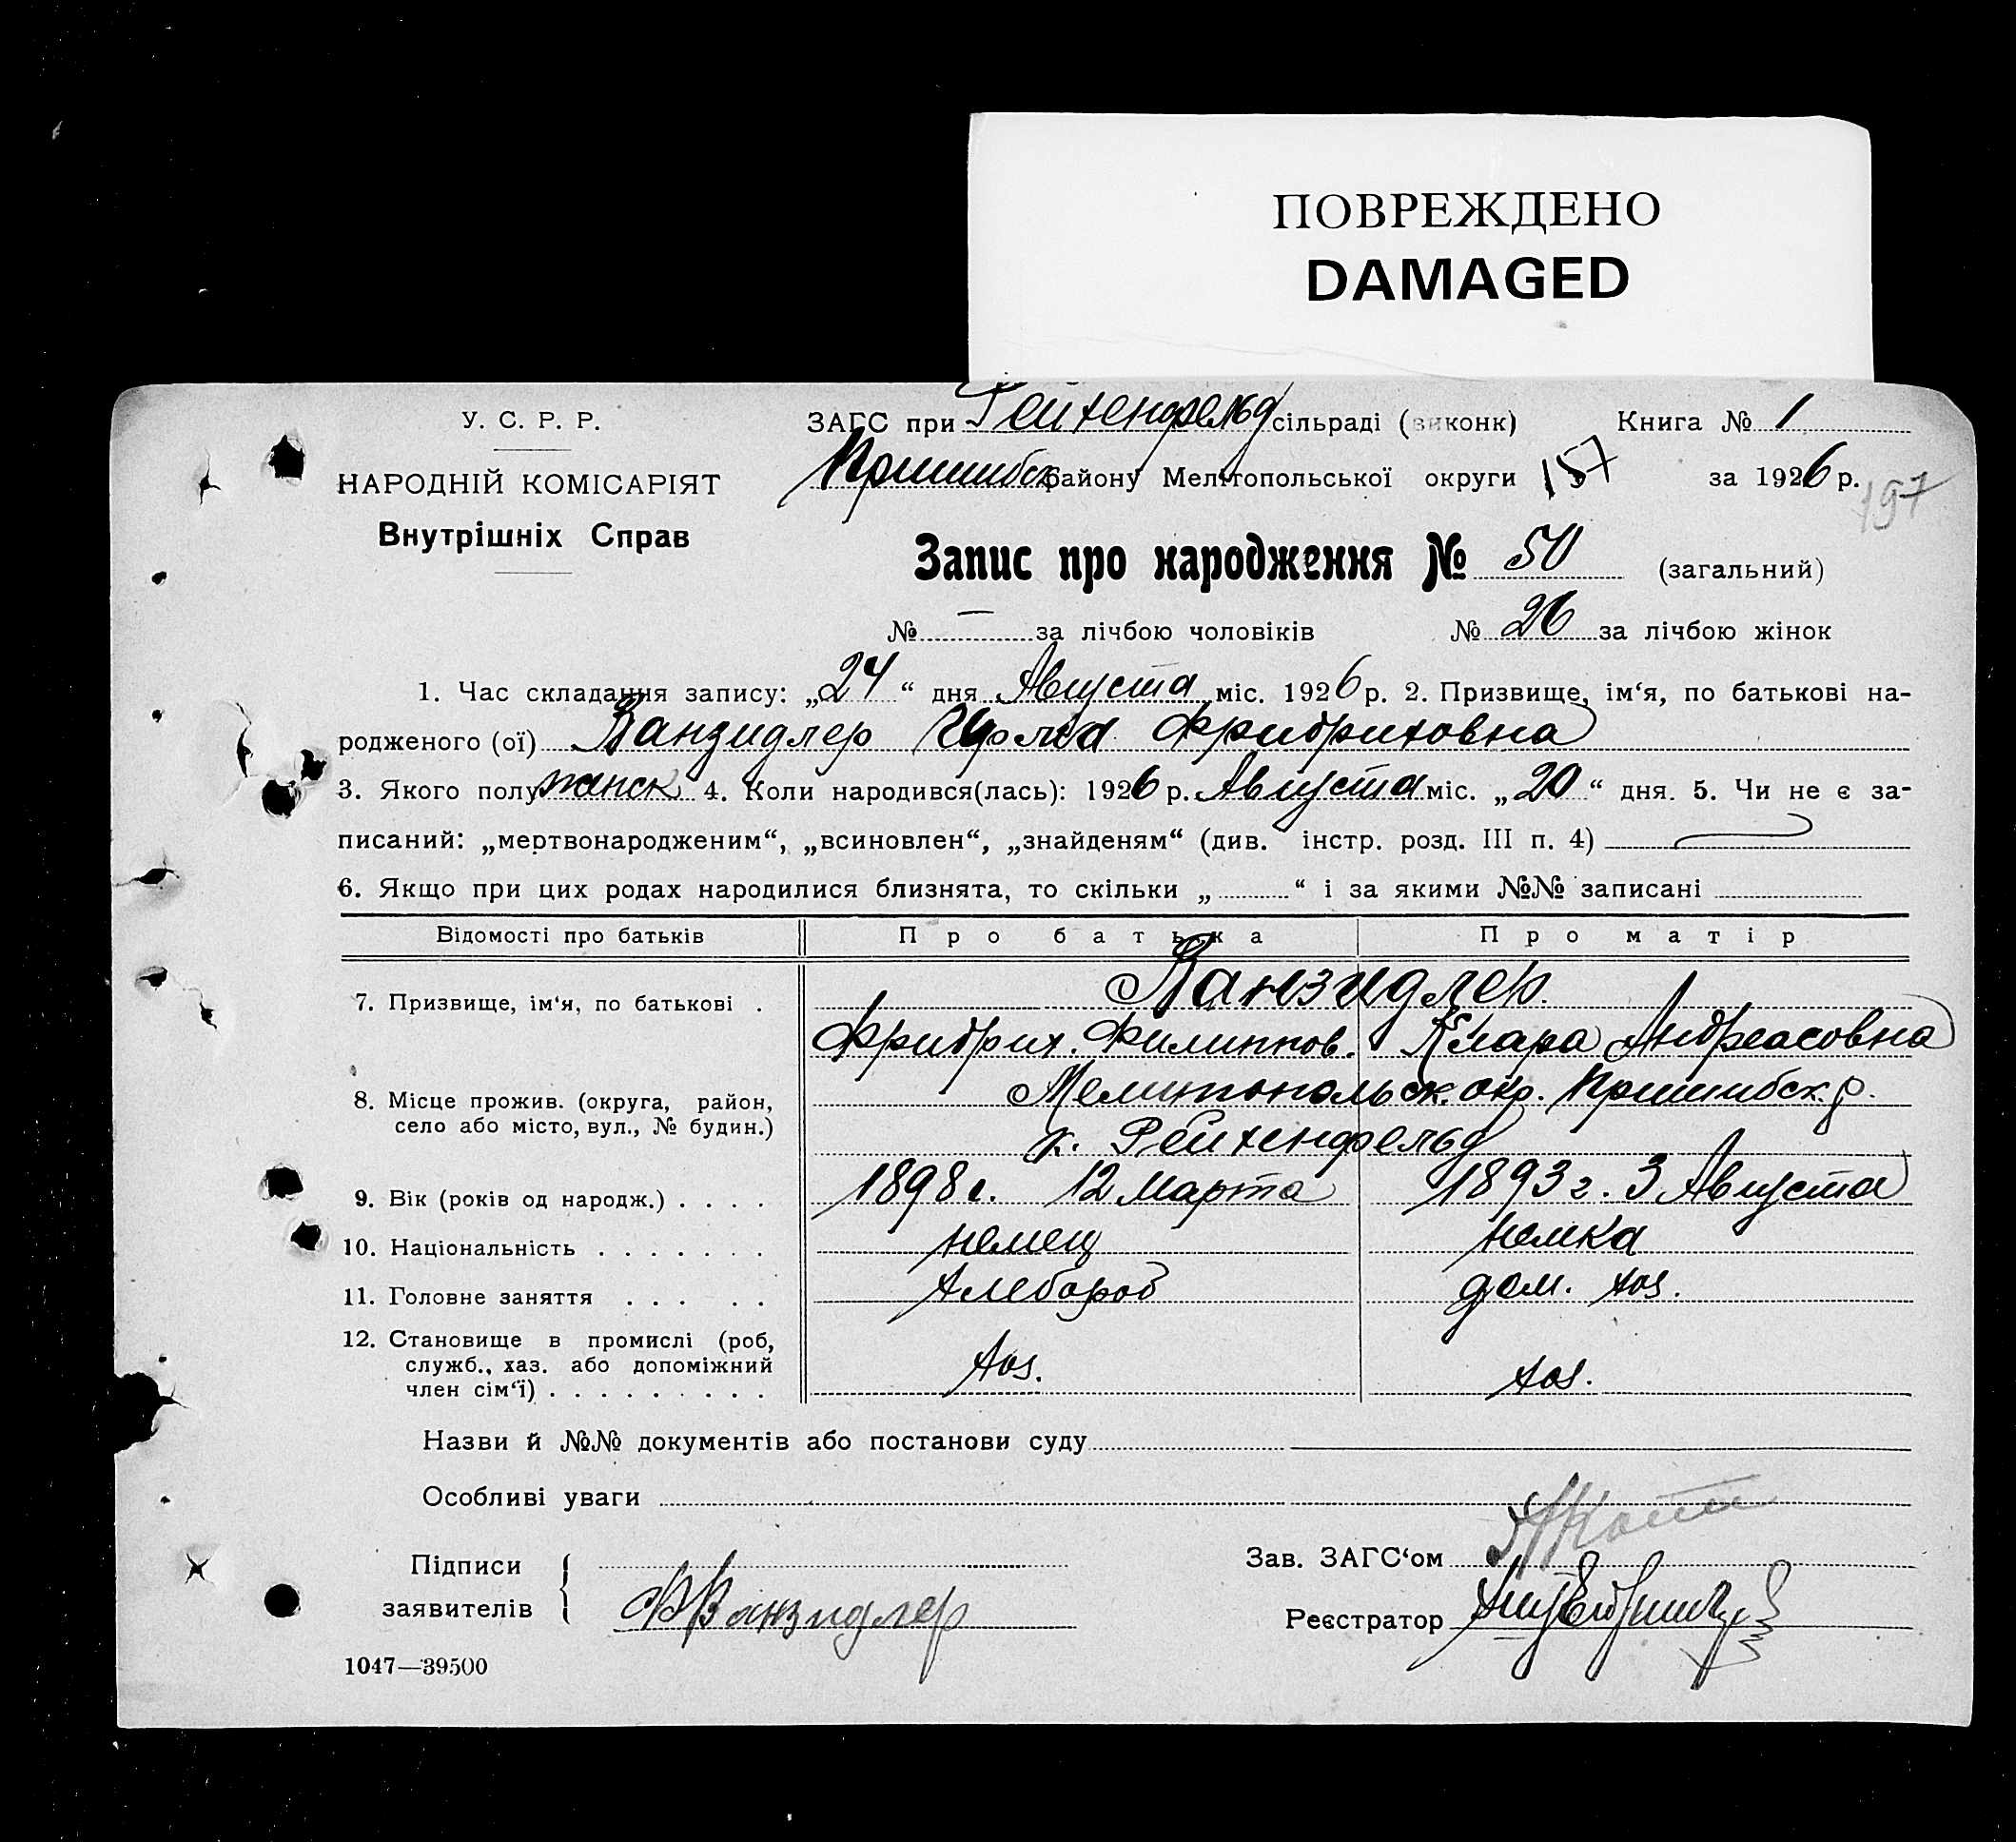 ПОВРЕЖДЕНО
DAMAGED
У. С. Р. Р.
НАРОДНІЙ КОМІСАРІЯТ
Внутрішніх Справ
ЗАГС при Рейхенфельд сільраді (виконк) Книга № 1
Пришибск району Мелітопольської округи 157 за 1926 р.
197
Запис про народження № 50 (загальний)
№ — за лічбою чоловіків № 26 за лічбою жінок
1. Час складання запису: „24“ дня Августа міс. 1926 р. 2. Призвище, ім‘я, по батькові на-
родженого (ої) Ванзидлер Фридриховна
3. Якого полу женск 4. Коли народився(лась): 1926 р. Августа міс. „20“ дня. 5. Чи не є за-
писаний: „мертвонародженим“, „всиновлен“, „знайденям“ (див. інстр. розд. III п. 4)
6. Якщо при цих родах народилися близнята, то скільки „ “ і за якими №№ записані
Відомості про батьків Про батька Про матір
7. Призвище, ім‘я, по батькові . Ванзидлер.
Фридрих. Филиппов. Клара Андреасовна
8. Місце прожив. (округа, район, село або місто, вул., № будин.) Мелитопольск. окр. Пришибск. р.
к. Рейхенфельд
9. Вік (років од народж.) . . . . 1898 г. 12 Марта 1893 г. 3 Августа
10. Національність . . . . . . . немец немка
11. Головне заняття . . . . . Хлебороб дом. хоз.
12. Становище в промислі (роб,
служб., хаз. або допоміжний
член сім‘ї) . . . . . . . . . хоз. хоз.
Назви й №№ документів або постанови суду
Особливі уваги
Підписи
заявителів Ф Ванзидлер
Зав. ЗАГС‘ом
Реєстратор
1047—39500